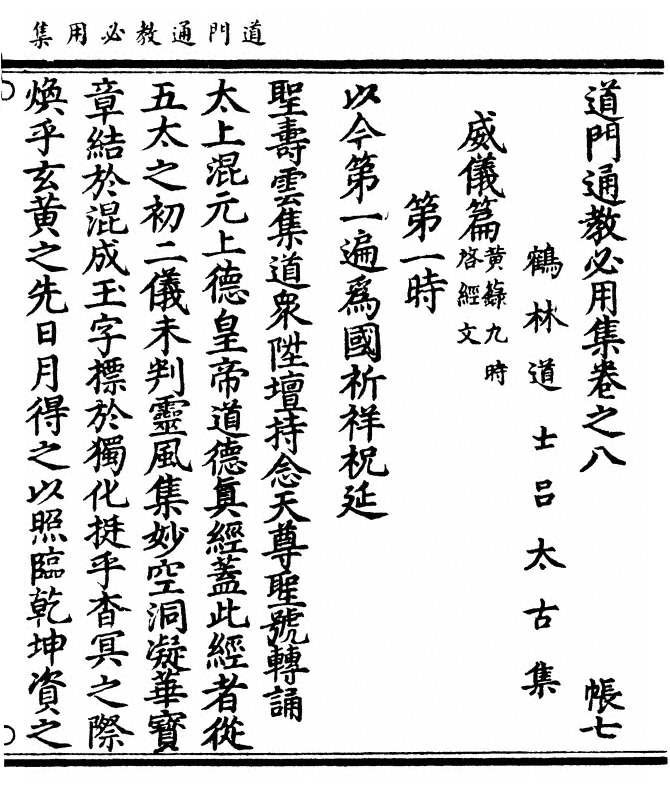 道門通教必用集
道門通教必用集卷之八 帳七
鶴林道士呂太古集
威儀篇 黄籙九時啓經文
第一時
以今第一遍爲國祈祥祝延
聖壽雲集道衆陞壇持念天尊聖號轉誦
太上混元上德皇帝道德眞經蓋此經者從
五太之初二儀未判靈風集妙空洞凝華寶
章結於混成玉字標於獨化挺乎杳冥之際
煥乎玄黄之先日月得之以照臨乾坤資之